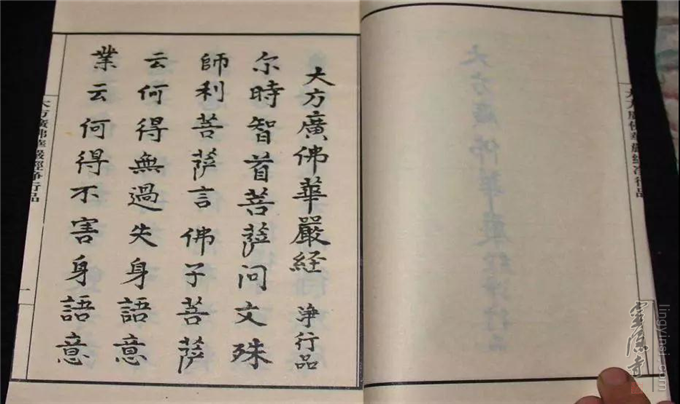 大方廣佛華嚴經淨行品
大方廣佛華嚴经淨行品
大方廣佛華嚴经 淨行品
尔時智首菩薩问文殊
師利菩薩言佛子菩薩
云何得無過失身語意
業云何得不害身語意
大方廣佛華嚴經淨行品
一
靈隱寺